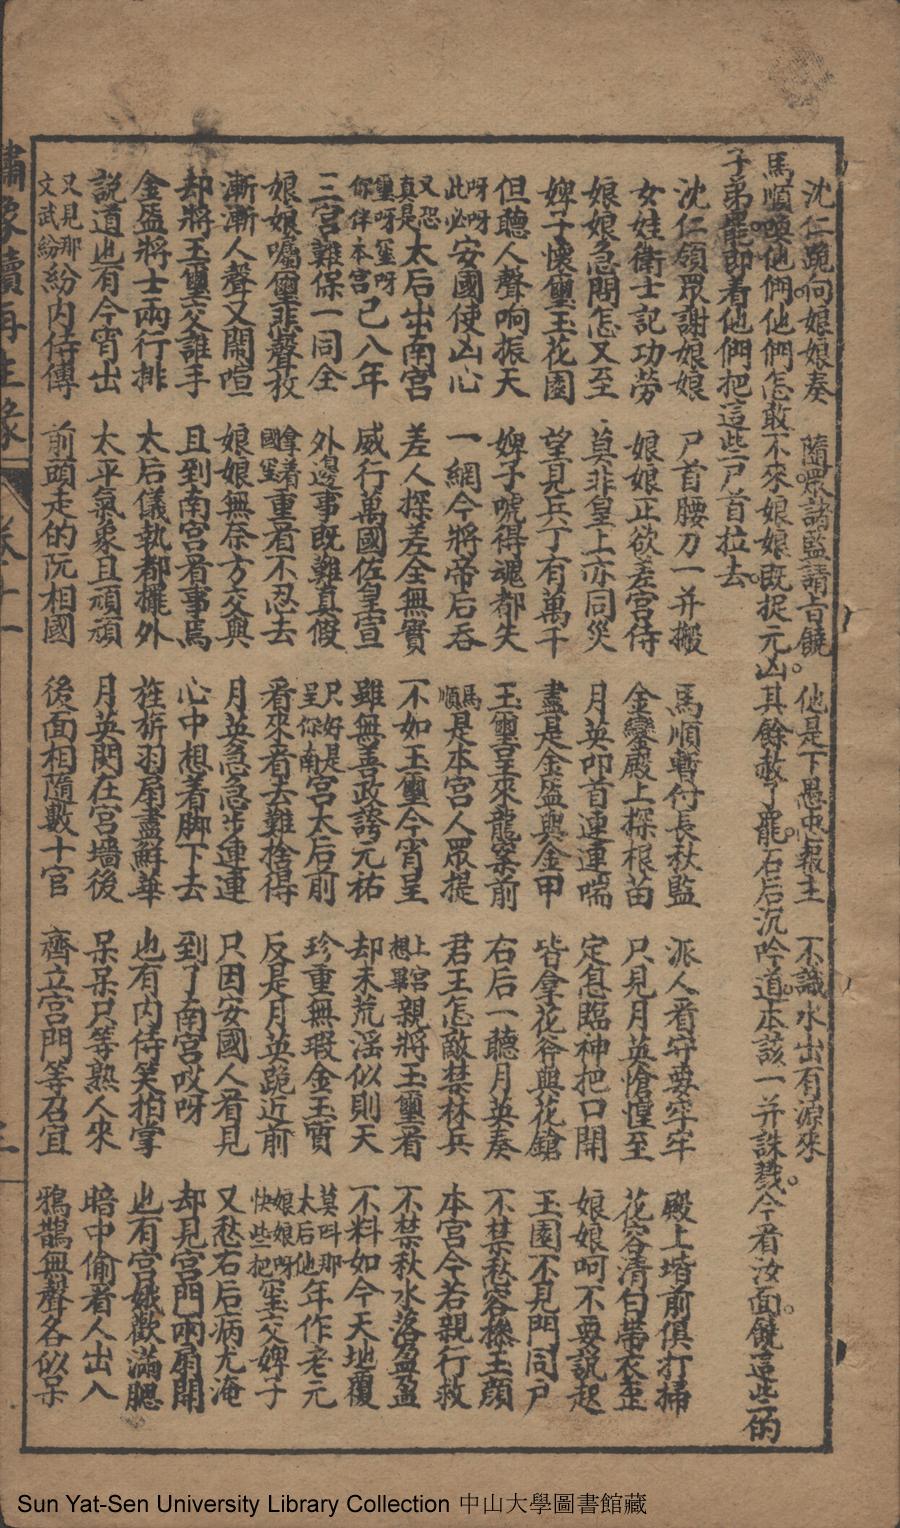 沈仁跪向娘娘奏　隨喚諸監請旨饒。他是下愚忠報主　不識水出有源來
馬順喚他們他們怎敢不來娘娘既捉元凶其餘赦了罷。右后沉吟道。本該一并誅戮。今看汝面。饒這些的
子弟罷即着他們把這些尸首拉去。
沈仁領眾謝娘娘　尸首腰刀一并搬　馬順暫付長秋監　派人看守要牢牢　殿上堦前俱打掃
女娃衛士記功勞　娘娘正欲差宮侍　金鑾殿上探根苗　只見月英愴惶至　花容清白帶衣歪
娘娘急問怎又至　莫非皇上亦同災　月英叩首連連喘　定息臨神把口開　娘娘呵不要說起
婢子懷璽玉花園　望見兵丁有萬千　盡是金盔與金甲　皆拿花斧與花鎗　玉園不見門同戶
但聽人聲响振天　婢子唬得魂都失　玉璽呈來龍案前　右后一聽月英奏　不禁愁容慘玉顏
呀呀此必安國使凶心　一網今將帝后吞　馬順是本宮人眾提　君王怎敵禁林兵　本宮今若親行救
又恐真是太后出南宮　差人探差全無實　不如玉璽今宵呈　上宮想畢親將玉璽看　不禁秋水落盈盈
璽呀璽呀你伴本宮已八年　威行萬國佐皇宣　雖無善政誇元祐　却未荒淫似則天　不料如今天地覆
三宮難保一同全　外邊事既難真假　只好是呈你南宮太后前　珍重無瑕金玉質　莫叫那太后他年作老元
娘娘囑璽悲聲放　拿着國璽重看不忍去　看來者去難捨得　反是月英跪近前　娘娘呀快些把璽交婢子
漸漸人聲又鬧喧　娘娘無奈方交與　月英急急步連連　只因安國人看見　又愁右后病尤淹
却將玉璽交誰手　且到南宮看事焉　心中想着脚下去　到了南宮哎呀　却見宮門兩扇開
金盔將士兩行排　太后儀執都擺外　旌旂羽扇盡鮮華　也有內侍笑拍掌　也有宮娥歡滿腮
說道也有今宵出　太平氣象且頑頑　月英閃在宮墻後　呆呆只等熟人來　暗中偷看人出入
又見那文武紛紛內侍傳　前頭走的阮相國　後面相隨數十官　齊立宮門等召宣　鴉鵲無聲各似呆
繡像續再生緣　卷十一
Sun Yat-Sen University Library Collection 中山大學圖書館藏